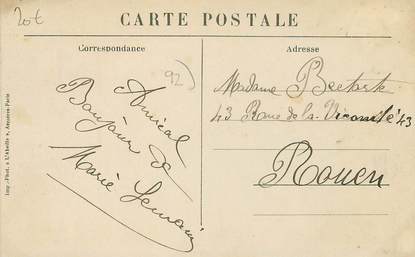 20t
CARTE POSTALE
Correspondance
Adresse
92)
Amical
Bonjour de
Marie
Madame
43 Rue de la Vicomté 43
Rouen
Imp.-Phot. « L'Abeille », Asnières-Paris